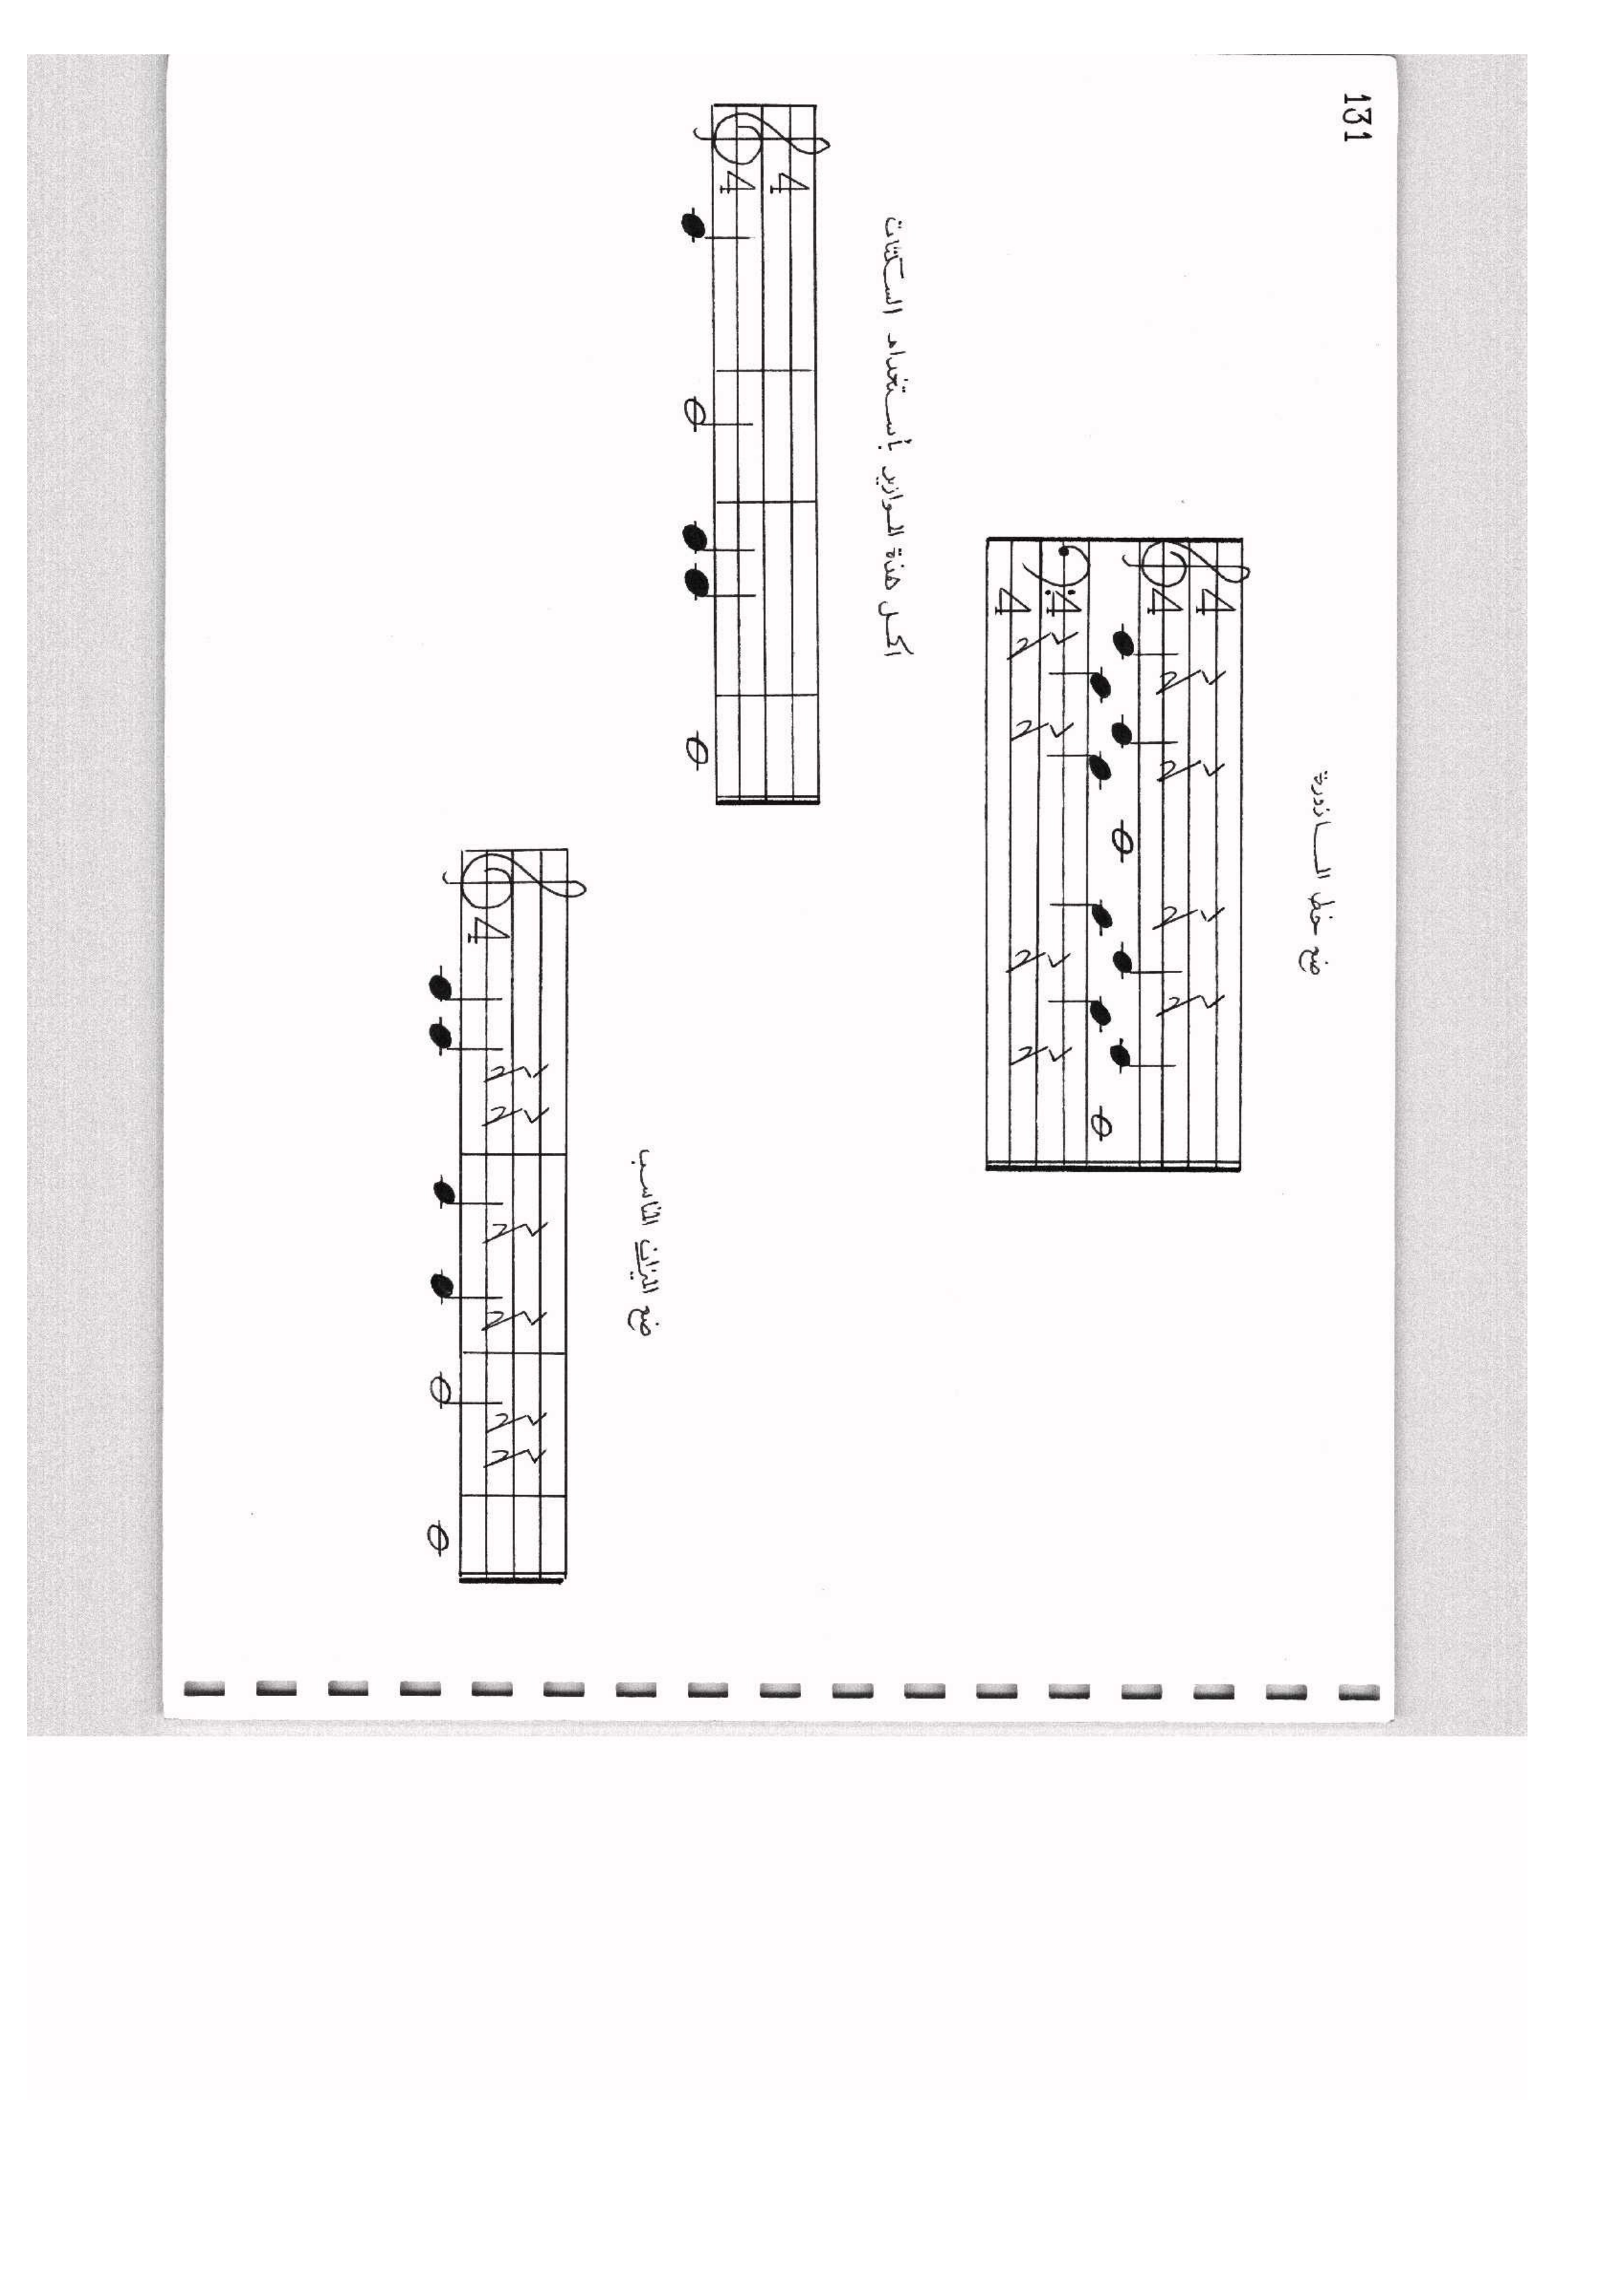 131
ضع خط المازورة
4 4
4 4
اكمل هذة الموازير بأستخدام السكتات
4 4
ضع الميزان المناسب
4